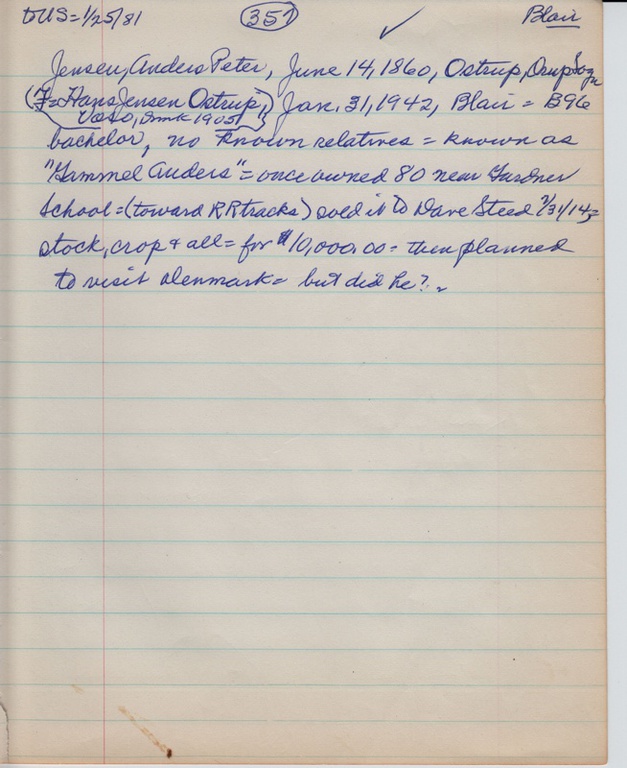 DUS=1/25/81 351 ✓ Blair
Jensen, Anders Peter, June 14, 1860, Ostrup, Orup Sogn
(F=Hans Jensen Ostrup,) Jan. 31, 1942, Blair = B96
Dmk 1905
bachelor, no known relatives = known as
"Gammel Anders" = once owned 80 near Gardner
School = (toward RR tracks) sold it to Dave Steed /31/14=
stock, crop & all = for $10,000.00 = then planned
to visit Denmark = but did he?